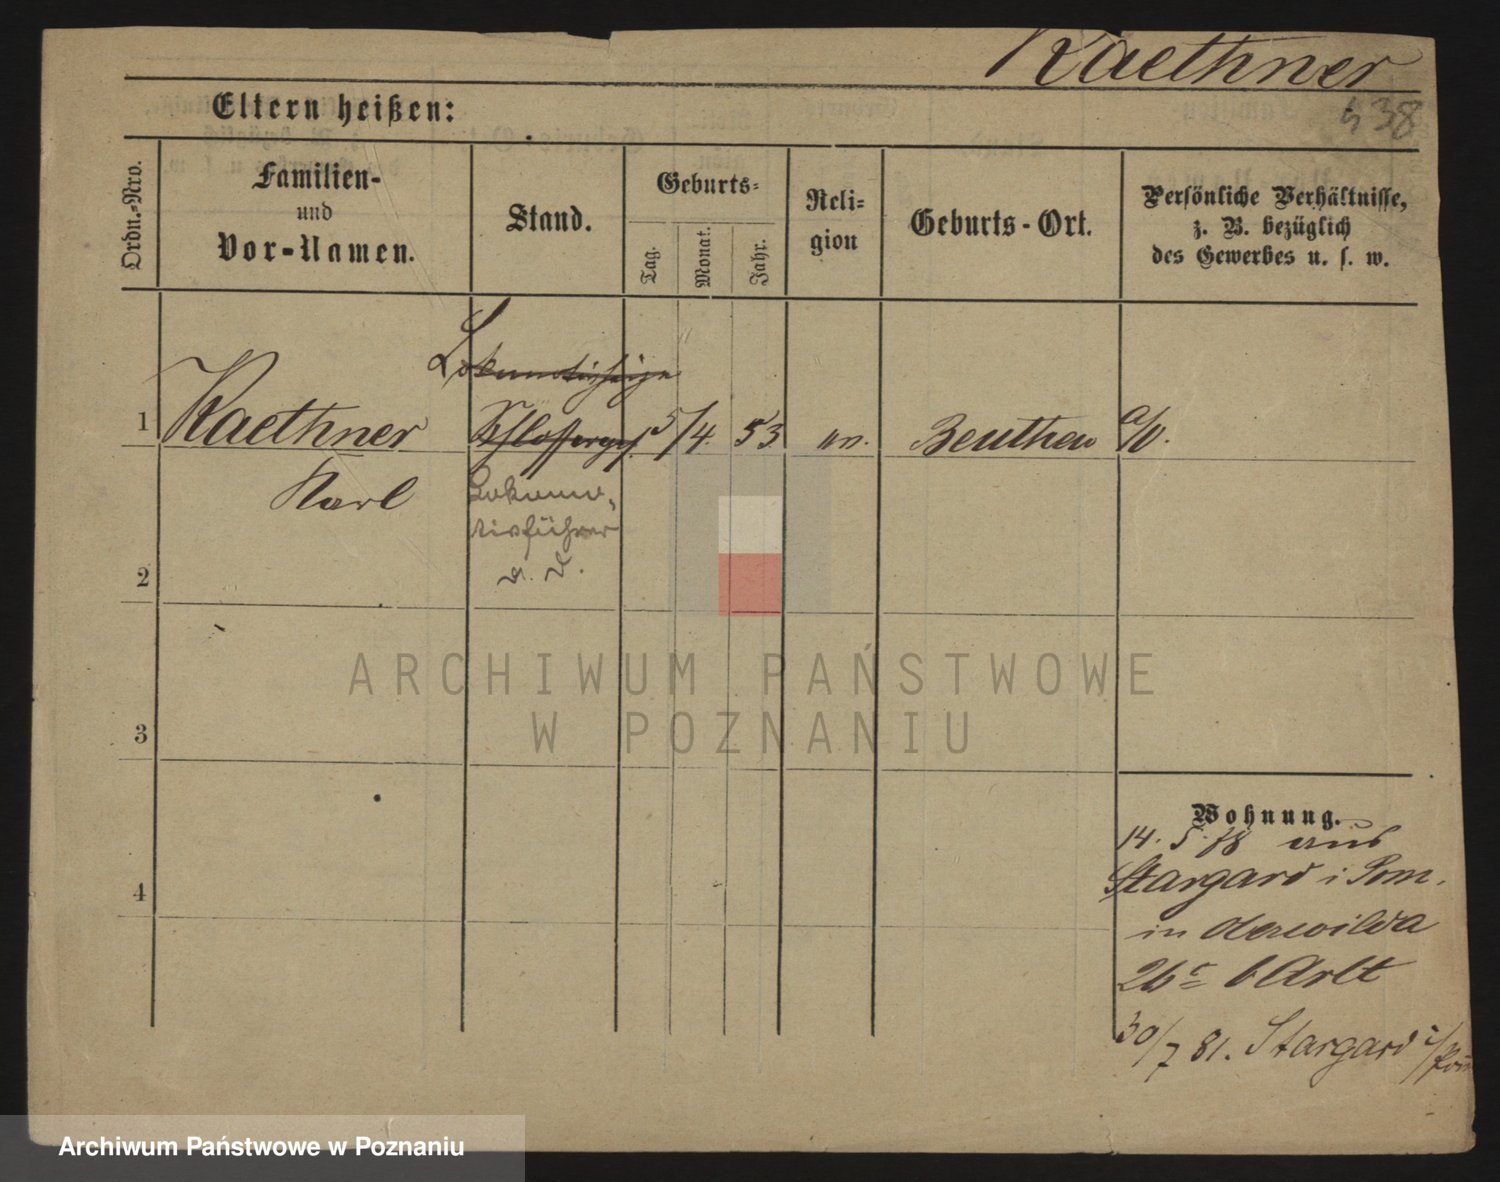 Kaethner
538
Eltern heißen:
Ordn.-Nro.
Familien-
und
Vor-Namen.
Stand.
Geburts-
Tag.
Monat.
Jahr.
Reli-
gion
Geburts-Ort.
Persönliche Verhältnisse,
z. B. bezüglich
des Gewerbes u. s. w.
1
Kaethner
Karl
Schlosserges.
Lokomo-
tivführer
a. D.
5/4. 53
ev.
Beuthen a/O.
2
3
4
ARCHIWUM PAŃSTWOWE
W POZNANIU
Wohnung.
14. 5. 78 aus
Stargard i Pom.
in Oberwilda
26c b Arlt
30/7 81. Stargard i/Pom
Archiwum Państwowe w Poznaniu